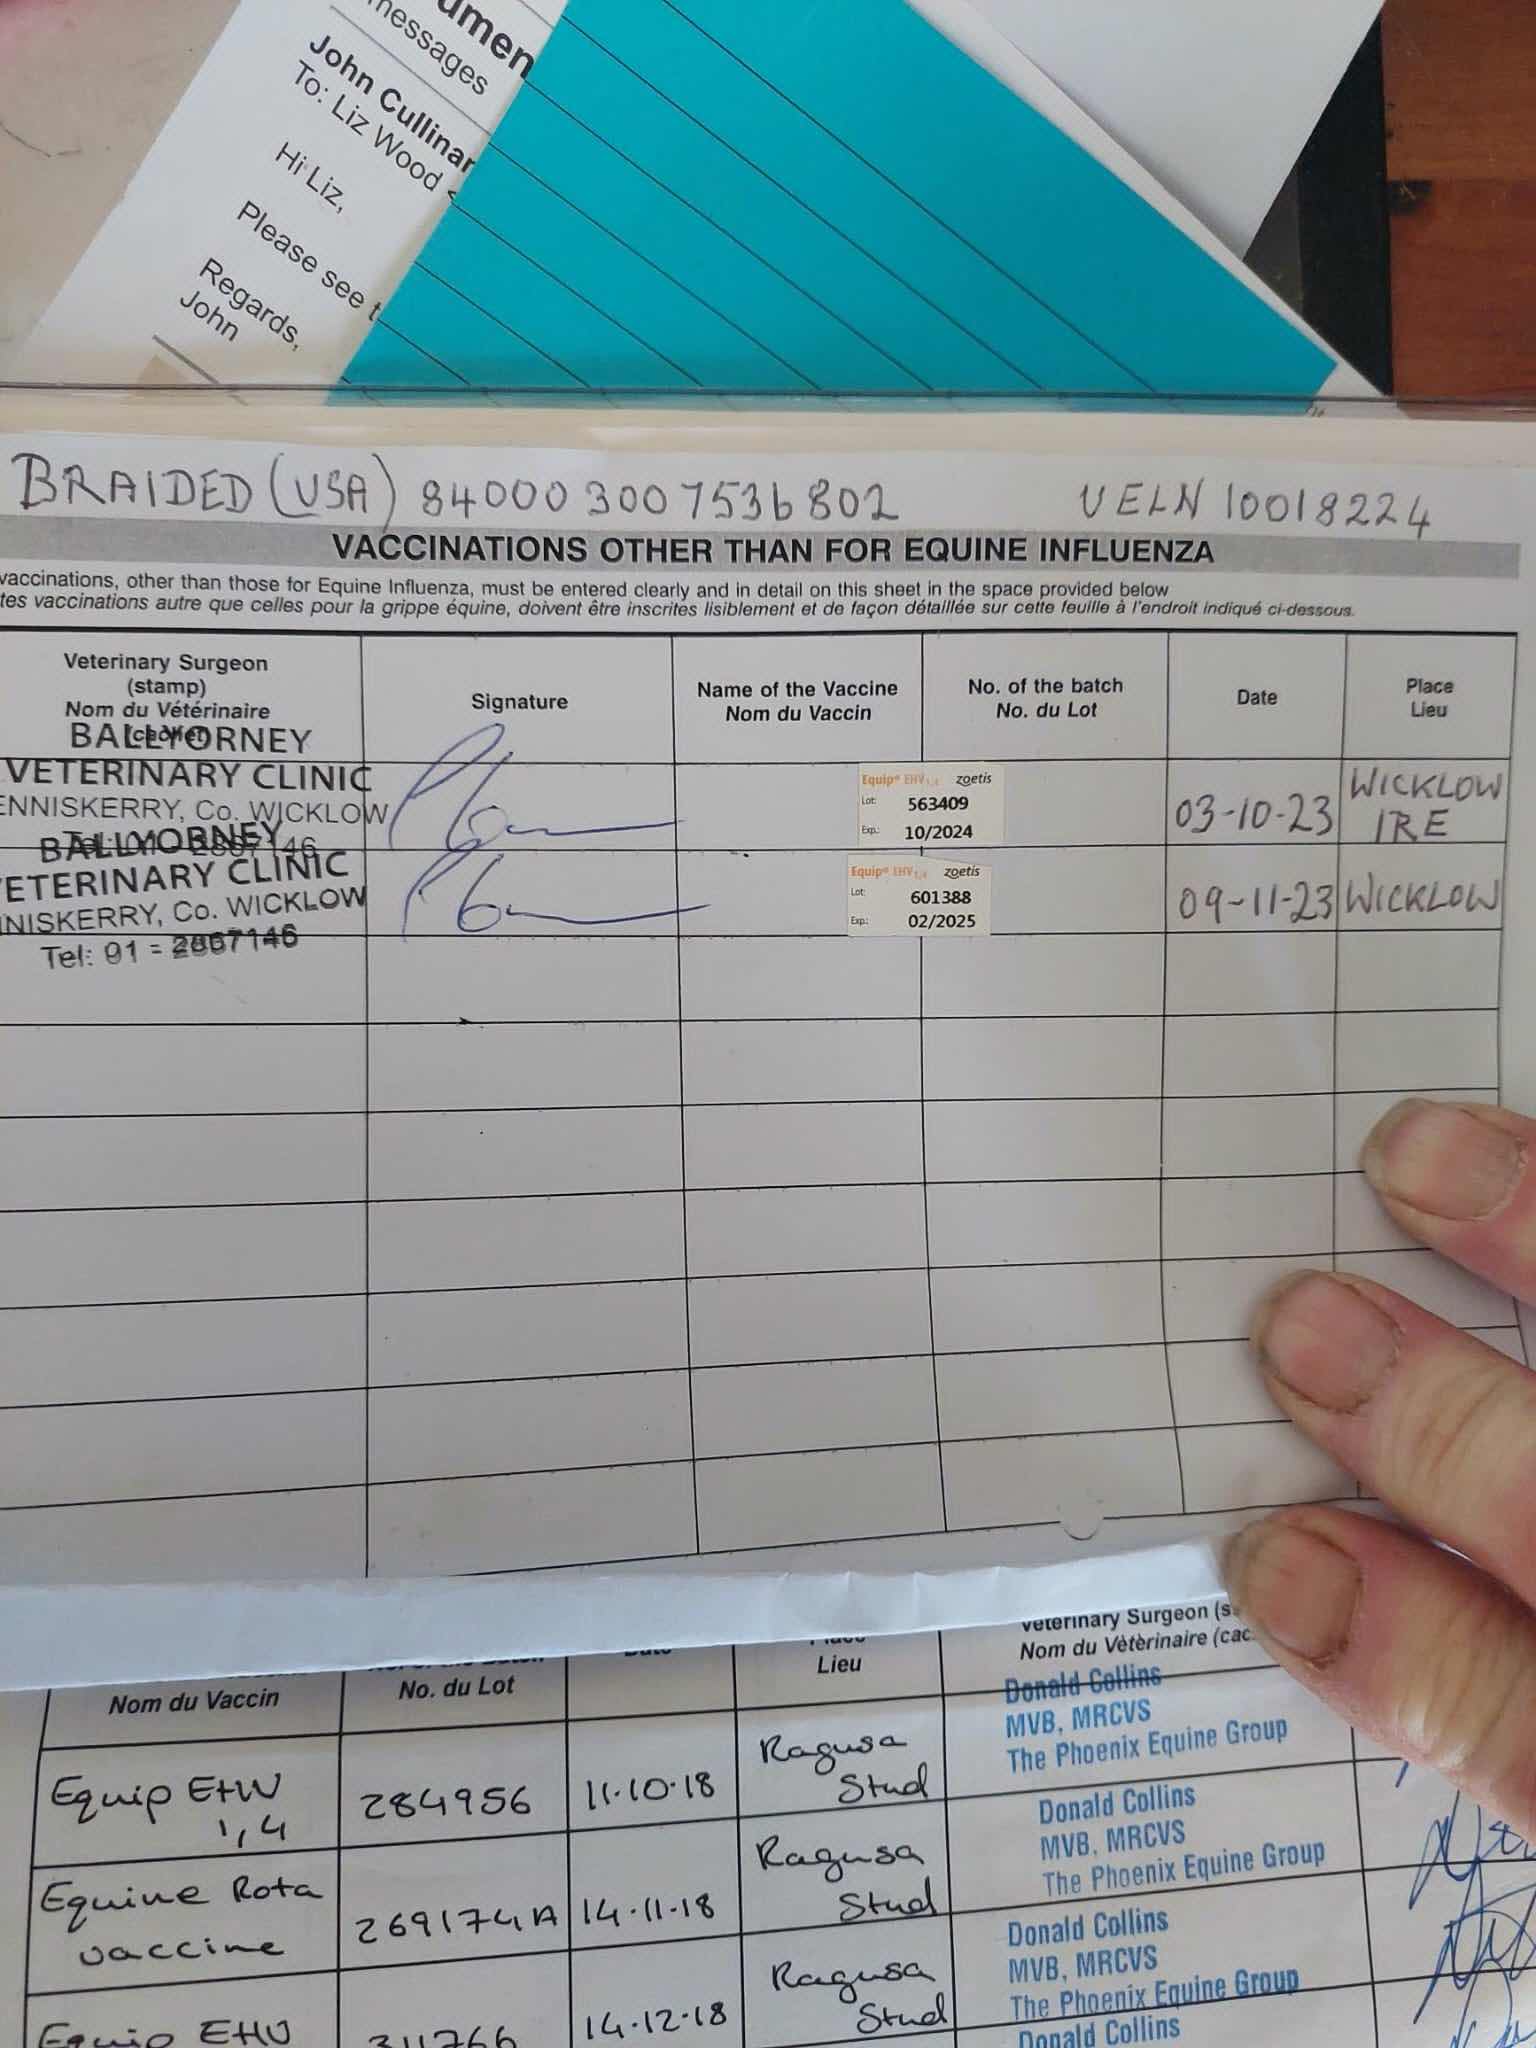 umen
messages
John Cullinan
To: Liz Wood <
Hi Liz,
Please see t
Regards,
John
BRAIDED (USA) 840003007536802 UELN 10018224
VACCINATIONS OTHER THAN FOR EQUINE INFLUENZA
vaccinations, other than those for Equine Influenza, must be entered clearly and in detail on this sheet in the space provided below
tes vaccinations autre que celles pour la grippe équine, doivent être inscrites lisiblement et de façon détaillée sur cette feuille à l'endroit indiqué ci-dessous.
Veterinary Surgeon
(stamp)
Nom du Vétérinaire
Signature
Name of the Vaccine
Nom du Vaccin
No. of the batch
No. du Lot
Date
Place
Lieu
BALLYORNEY
VETERINARY CLINIC
ENNISKERRY, Co. WICKLOW
Equip® EHV1,4 zoetis
Lot: 563409
Exp.: 10/2024
03-10-23
WICKLOW
IRE
BALLYORNEY
VETERINARY CLINIC
NISKERRY, Co. WICKLOW
Tel: 01 - 2867146
Equip® EHV1,4 zoetis
Lot: 601388
Exp.: 02/2025
09-11-23
WICKLOW
Nom du Vaccin
No. du Lot
Date
Place
Lieu
Veterinary Surgeon (s
Nom du Vètèrinaire (cac
Equip EHV
1,4
284956
11.10.18
Ragusa
Stud
Donald Collins
MVB, MRCVS
The Phoenix Equine Group
Equine Rota
vaccine
269174A
14.11.18
Ragusa
Stud
Donald Collins
MVB, MRCVS
The Phoenix Equine Group
Equip EHV
311766
14.12.18
Ragusa
Stud
Donald Collins
MVB, MRCVS
The Phoenix Equine Group
Donald Collins